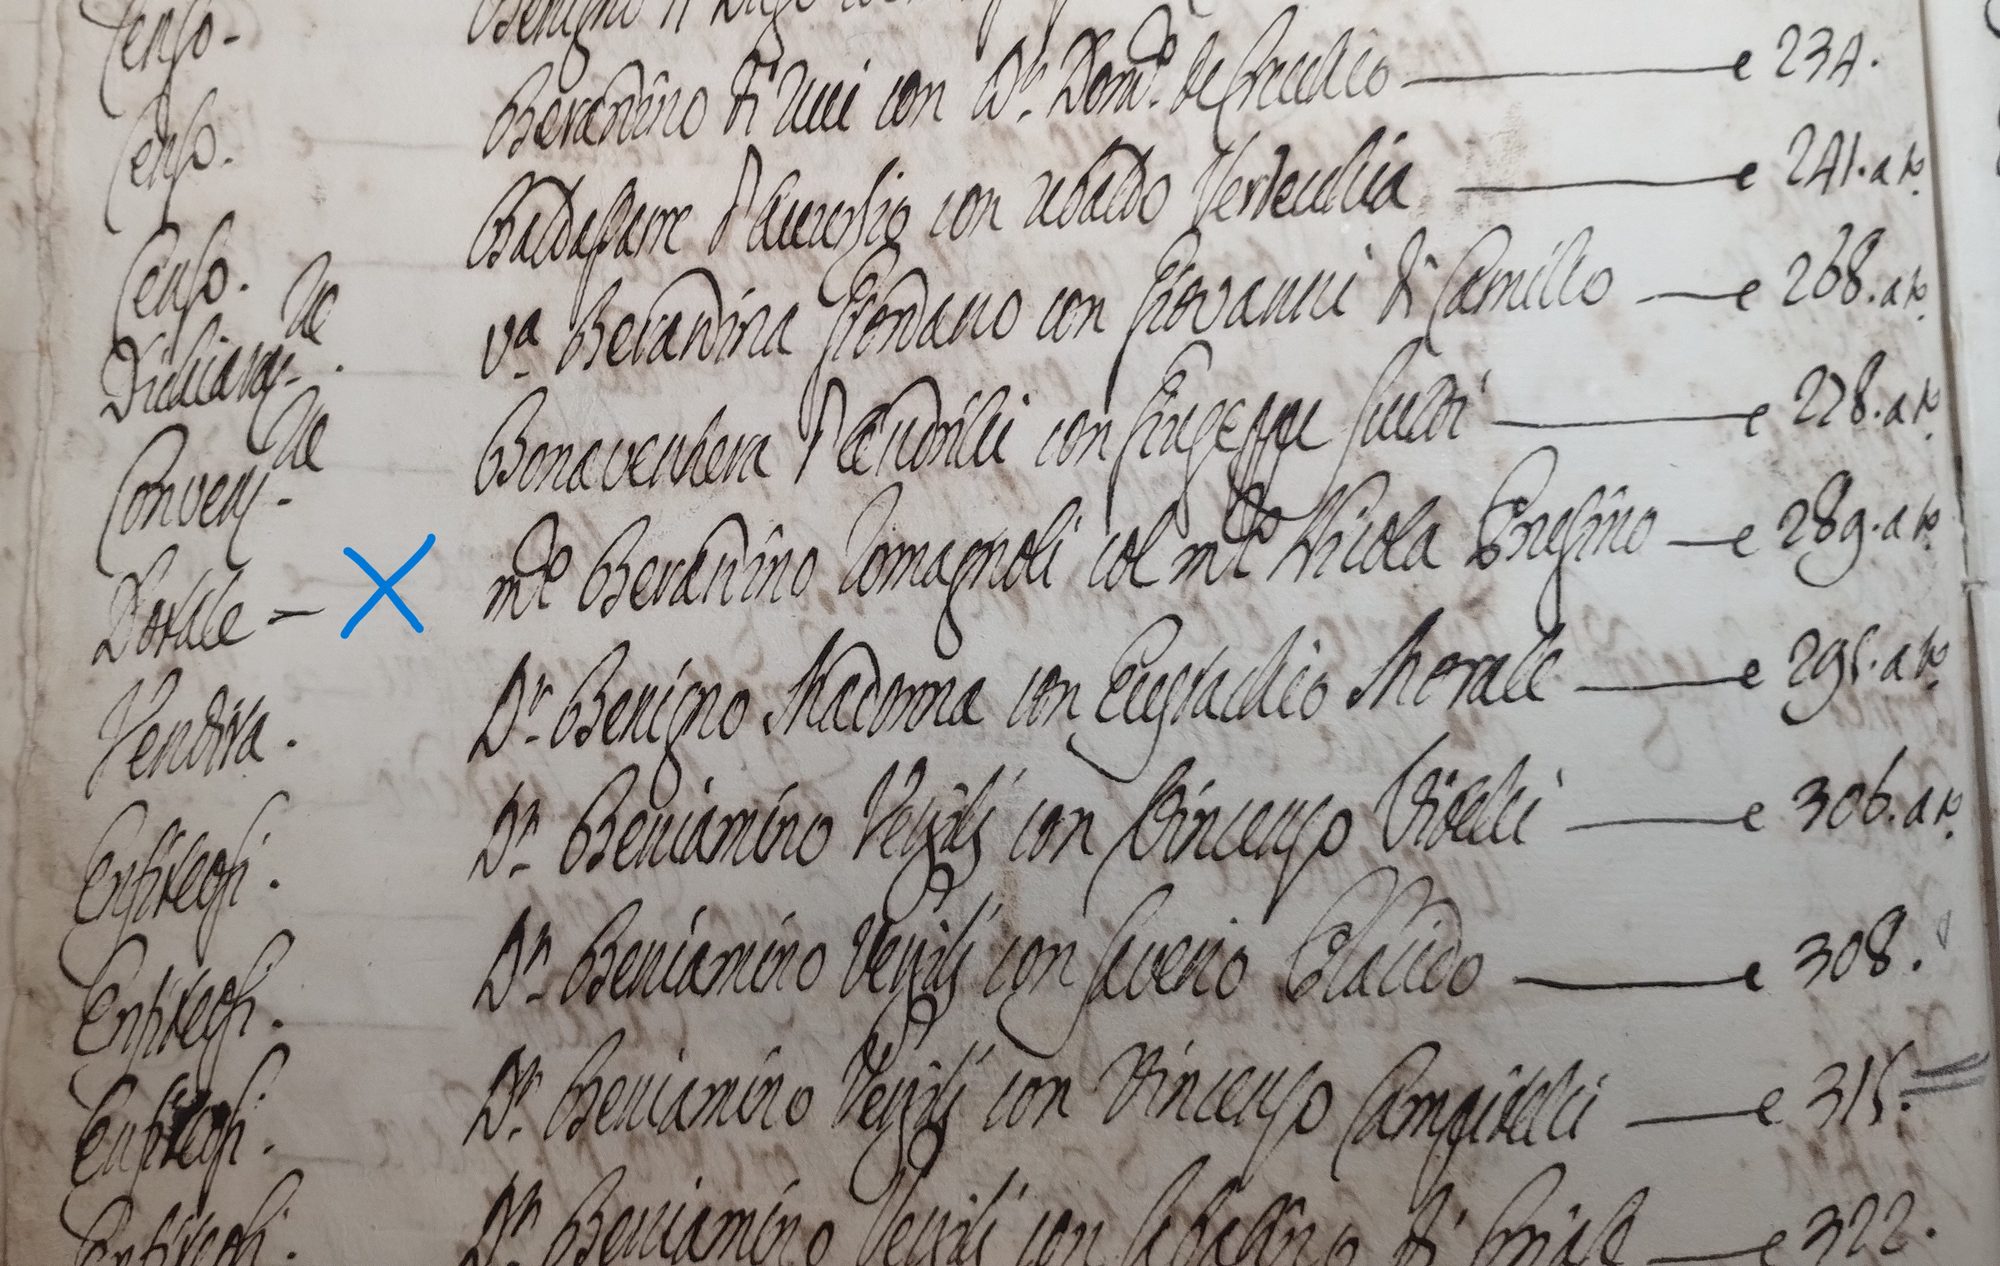 Censo - Benigno di
Censo. Berardino di con Dr. Dom.co de 234.
Censo. Baldassarre con Ubaldo Verdecchia e 241. a to.
Dichiaraz.ne v.a Berardina Giordano con Giovanni di Camillo e 268. a to.
Convenz.ne Bonaventura con Giuseppe e 278. a to.
Dotale - m.ro Berardino Romagnoli col m.ro Nicola e 289. a to.
Vendita. Dn. Benigno Madonna con Eustachio Morale e 295. a to.
Enfiteosi. Dn. Beniamino Vergilj con Vincenzo Videlli e 306. a to.
Enfiteosi. Dn. Beniamino Vergilj con Saverio Placido e 308.
Enfiteosi. Dn. Beniamino Vergilj con Vincenzo Campitelli e 315.
Enfiteosi. Dn. Beniamino Vergilj con di e 322.